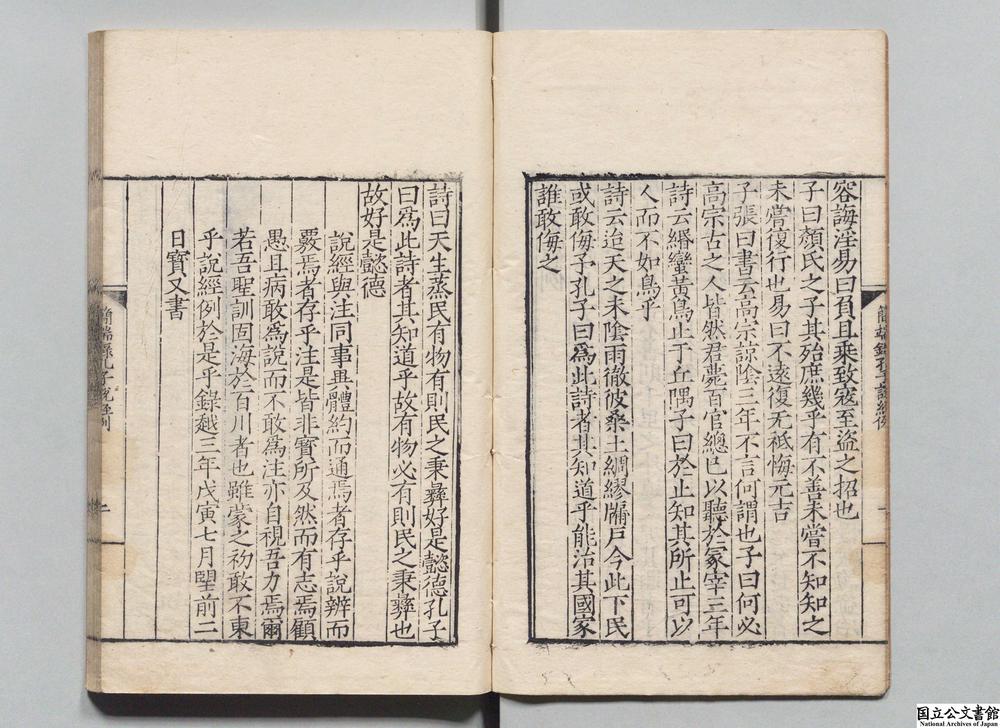 容誨淫易曰負且乘致寇至盜之招也
子曰顏氏之子其殆庶幾乎有不善未嘗不知知之
未嘗復行也易曰不遠復无祗悔元吉
子張曰書云高宗諒陰三年不言何謂也子曰何必
高宗古之人皆然君薨百官總已以聽於冢宰三年
詩云緡蠻黃鳥止于丘隅子曰於止知其所止可以
人而不如鳥乎
詩云迨天之未陰雨徹彼桑土綢繆牖戶今此下民
或敢侮予孔子曰爲此詩者其知道乎能治其國家
誰敢侮之
簡端錄孔子說經例
一
詩曰天生蒸民有物有則民之秉彝好是懿德孔子
曰爲此詩者其知道乎故有物必有則民之秉彝也
故好是懿德
說經與注同事異體約而通焉者存乎說辨而
覈焉者存乎注是皆非寶所及然而有志焉顧
愚且病敢爲說而不敢爲注亦自視吾力焉爾
若吾聖訓固海於百川者也雖蒙之初敢不東
乎說經例於是乎錄越三年戊寅七月朢前二
日寶又書
簡端錄孔子說經例
二
国立公文書館
National Archives of Japan